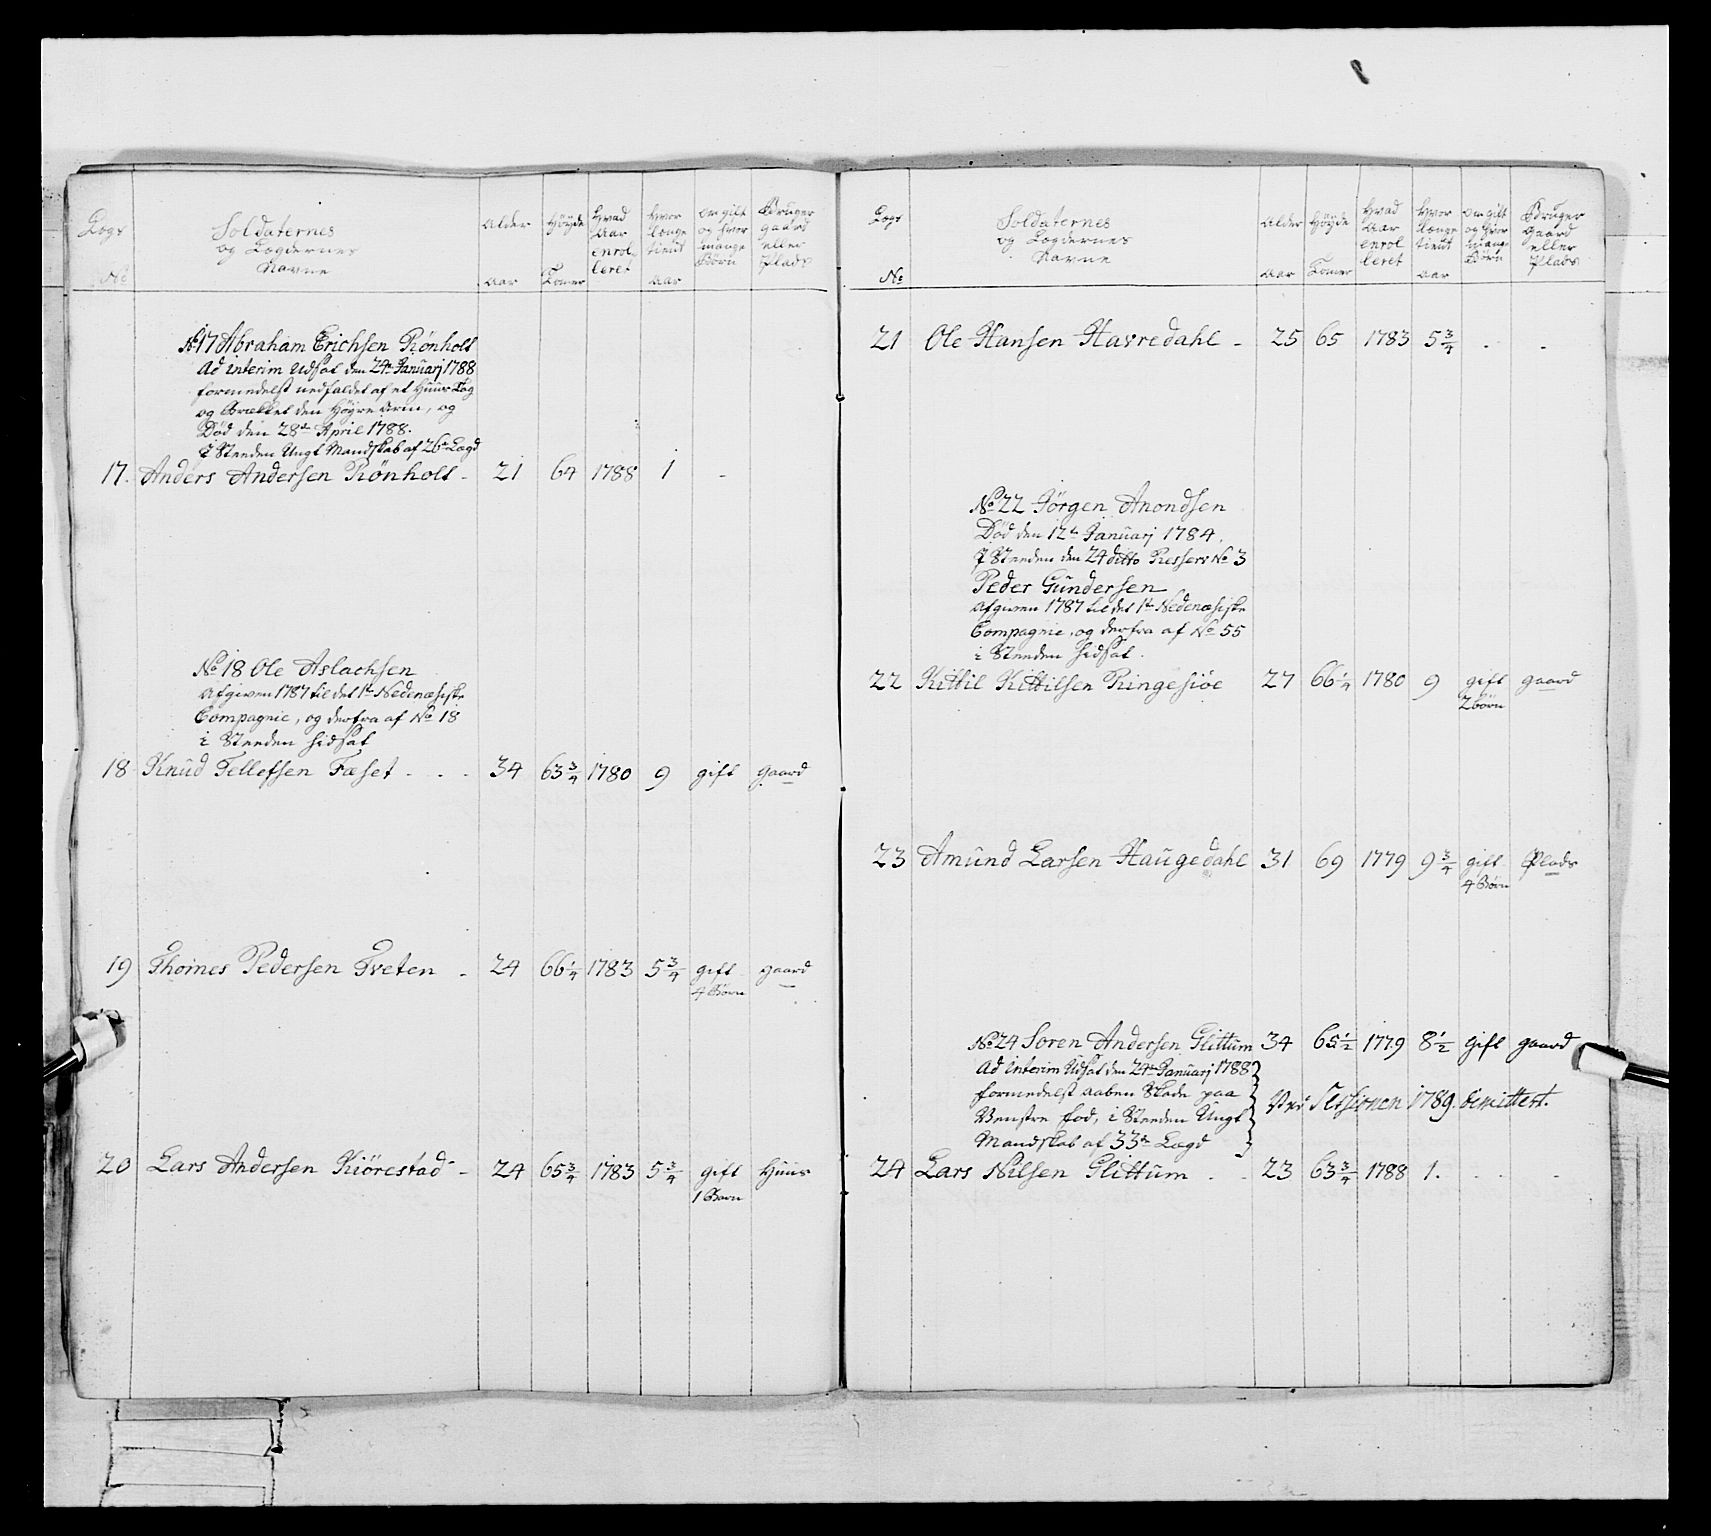 Logs No Soldaternes og Lægdernes Navne Alder Aar Høyde Tomer Hvad Aar enrolleret Hvor længe tient Aar Om gift og hvor mange Børn Bruger Gaard eller Plads
No 17 Abraham Erichsen Rönholt
Ad interim Udsat den 24de Januarj 1788
formedelst nedfaldet af et Huus Tag
og Brækket den Höyre Arm, og
Död den 28de April 1788.
I Steeden Ungt Mandskab af 26de Lægd
17. Anders Andersen Rönholt - 21 64 1788 1 -
No 18 Ole Aslachsen
Afgiven 1787 til det 1te Nedenæsiske
Compagnie, og derfra af No 18
i Steeden hidsat
18 Knud Tellefsen Fæset - - - 34 63 3/4 1780 9 gift gaard
19 Thomes Pedersen Tveten - 24 66 1/4 1783 5 3/4 gift gaard
4 Börn
20 Lars Andersen Kiörestad - 24 65 3/4 1783 5 3/4 gift Huus
1 Barn
Logs No Soldaternes og Lægdernes Navne Alder Aar Høyde Tomer Hvad Aar enrolleret Hvor længe tient Aar Om gift og hvor mange Børn Bruger Gaard eller Plads
21 Ole Hansen Havredahl - 25 65 1783 5 3/4 - -
No 22 Jörgen Anondsen
Död den 12te Januarj 1784.
I Steeden den 24 ditto Resserv No 3
Peder Gundersen
Afgiven 1787 til det 1te Nedenæsiske
Compagnie, og derfra af No 55
i Steeden hidsat.
22 Kittil Kittilsen Ringesiöe 27 66 1/4 1780 9 gift gaard
2 börn
23 Amund Larsen Haugedahl 31 69 1779 9 3/4 gift Plads
4 Börn
No 24 Soren Andersen Glittum 34 65 1/2 1779 8 1/2 gift gaard
Ad interim Udsat den 24de Januarj 1788
formedelst aaben Skade paa
Venstre fod, i Steeden Ungt
Mandskab af 33te Lægd
Ved Sessionen 1789. demittert.
24 Lars Nilsen Glittum - - 23 63 3/4 1788 1. - - -